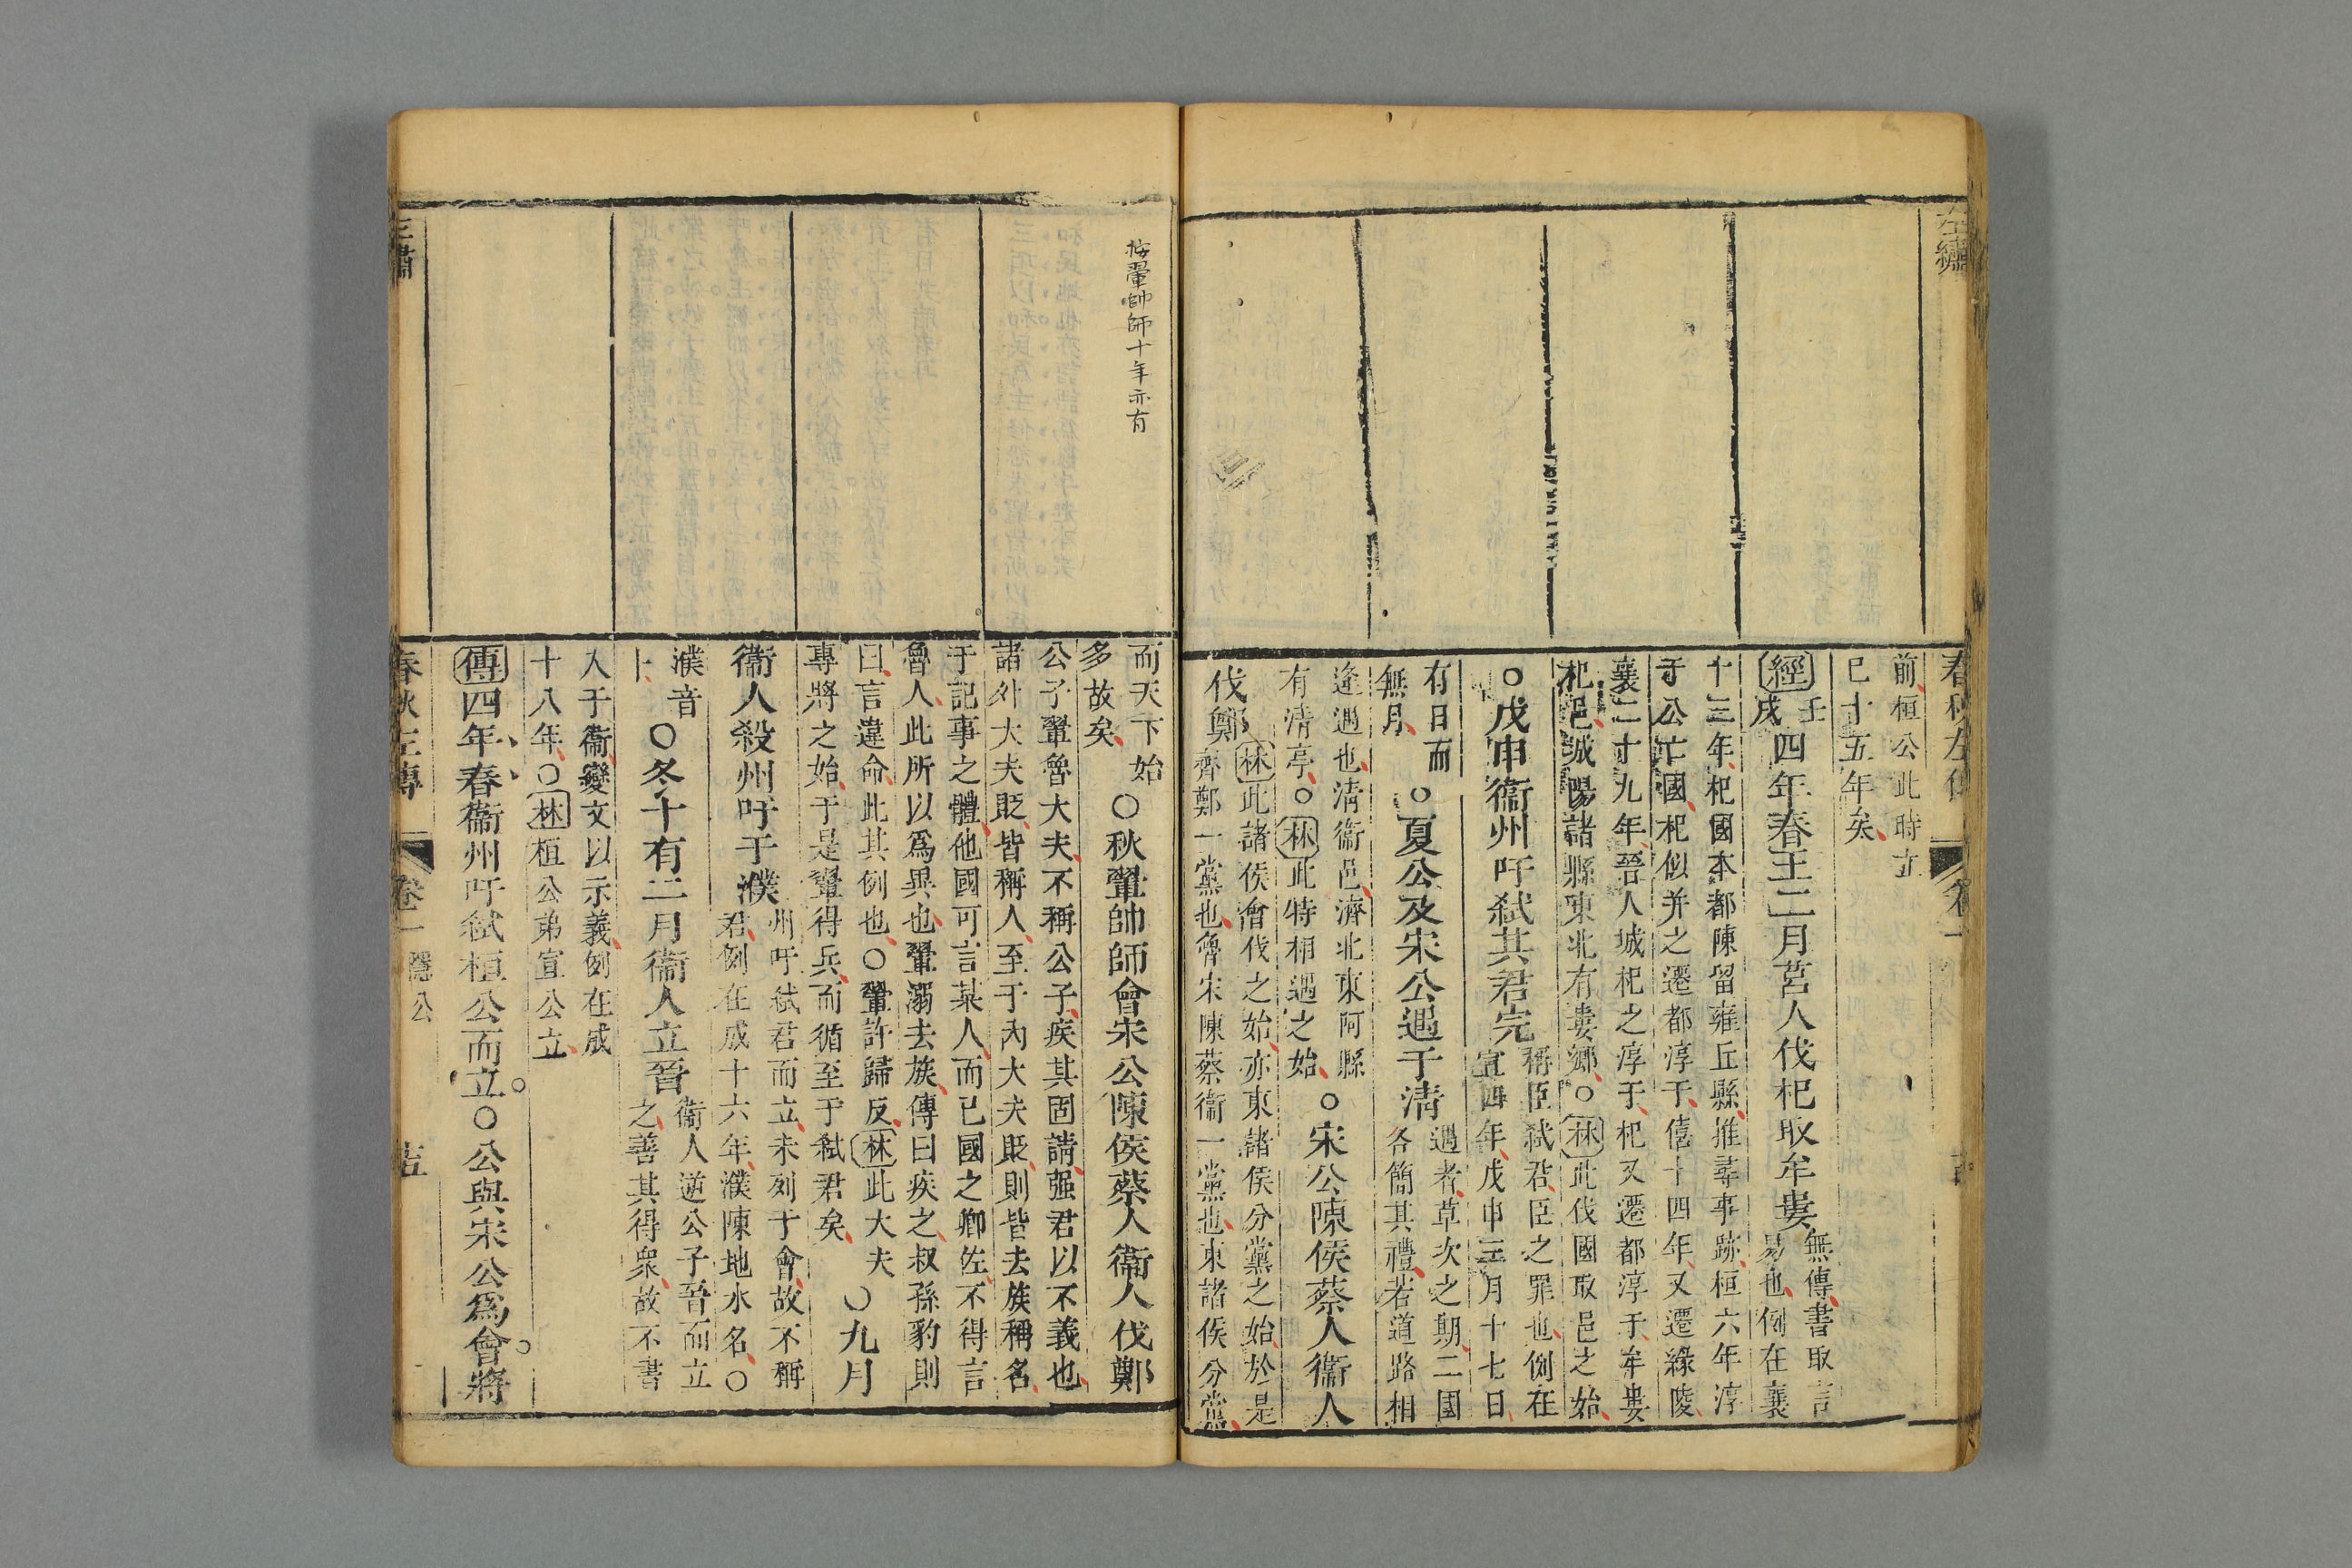 左繡
春秋左傳
卷一
前桓公此時立
已十五年矣
經壬戌四年春王二月莒人伐杞取牟婁無傳書取言易也例在襄
十三年杞國本都陳留雍丘縣推尋事跡桓六年淳
于公亡國杞似并之遷都淳于僖十四年又遷緣陵
襄二十九年晉人城杞之淳于杞又遷都淳于牟婁
杞邑城陽諸縣東北有婁鄉○林此伐國取邑之始
○戊申衛州吁弒其君完稱臣弒君臣之罪也例在宣四年戊申三月十七日
有日而無月○夏公及宋公遇于清遇者草次之期二國各簡其禮若道路相
逢遇也清衛邑濟北東阿縣有清亭○林此特相遇之始○宋公陳侯蔡人衛人
伐鄭林此諸侯會伐之始亦東諸侯分黨之始於是齊鄭一黨也魯宋陳蔡衛一黨也東諸侯分黨
按翬帥師十年亦有
而天下始多故矣○秋翬帥師會宋公陳侯蔡人衛人伐鄭
公子翬魯大夫不稱公子疾其固請强君以不義也
諸外大夫貶皆稱人至于內大夫貶則皆去族稱名
于記事之體他國可言某人而己國之卿佐不得言
魯人此所以爲異也翬溺去族傳曰疾之叔孫豹則
曰言違命此其例也○翬許歸反林此大夫
專將之始于是翬得兵而循至于弒君矣○九月
衛人殺州吁于濮州吁弒君而立未列于會故不稱君例在成十六年濮陳地水名○
濮音卜○冬十有二月衛人立晉衛人逆公子晉而立之善其得衆故不書
入于衛變文以示義例在成
十八年○林桓公弟宣公立
傳四年春衛州吁弒桓公而立○公與宋公爲會將
春秋左傳
卷一
隱公
十五